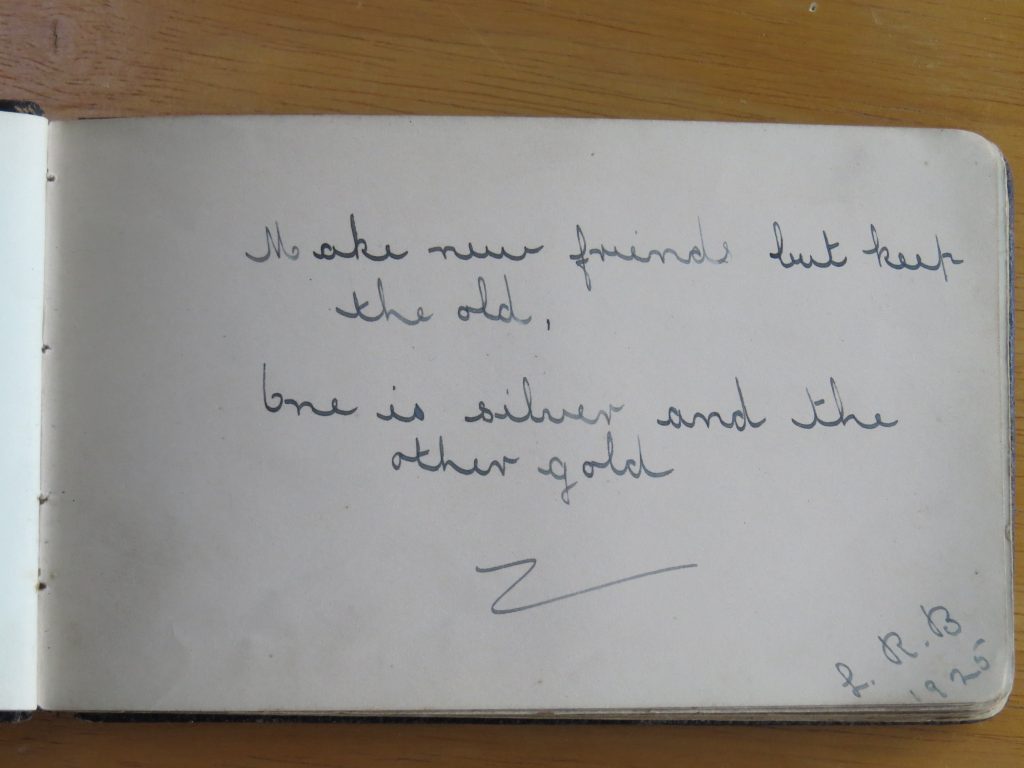 Make new friends but keep
the old,
One is silver and the
other gold
L. R. B
1925